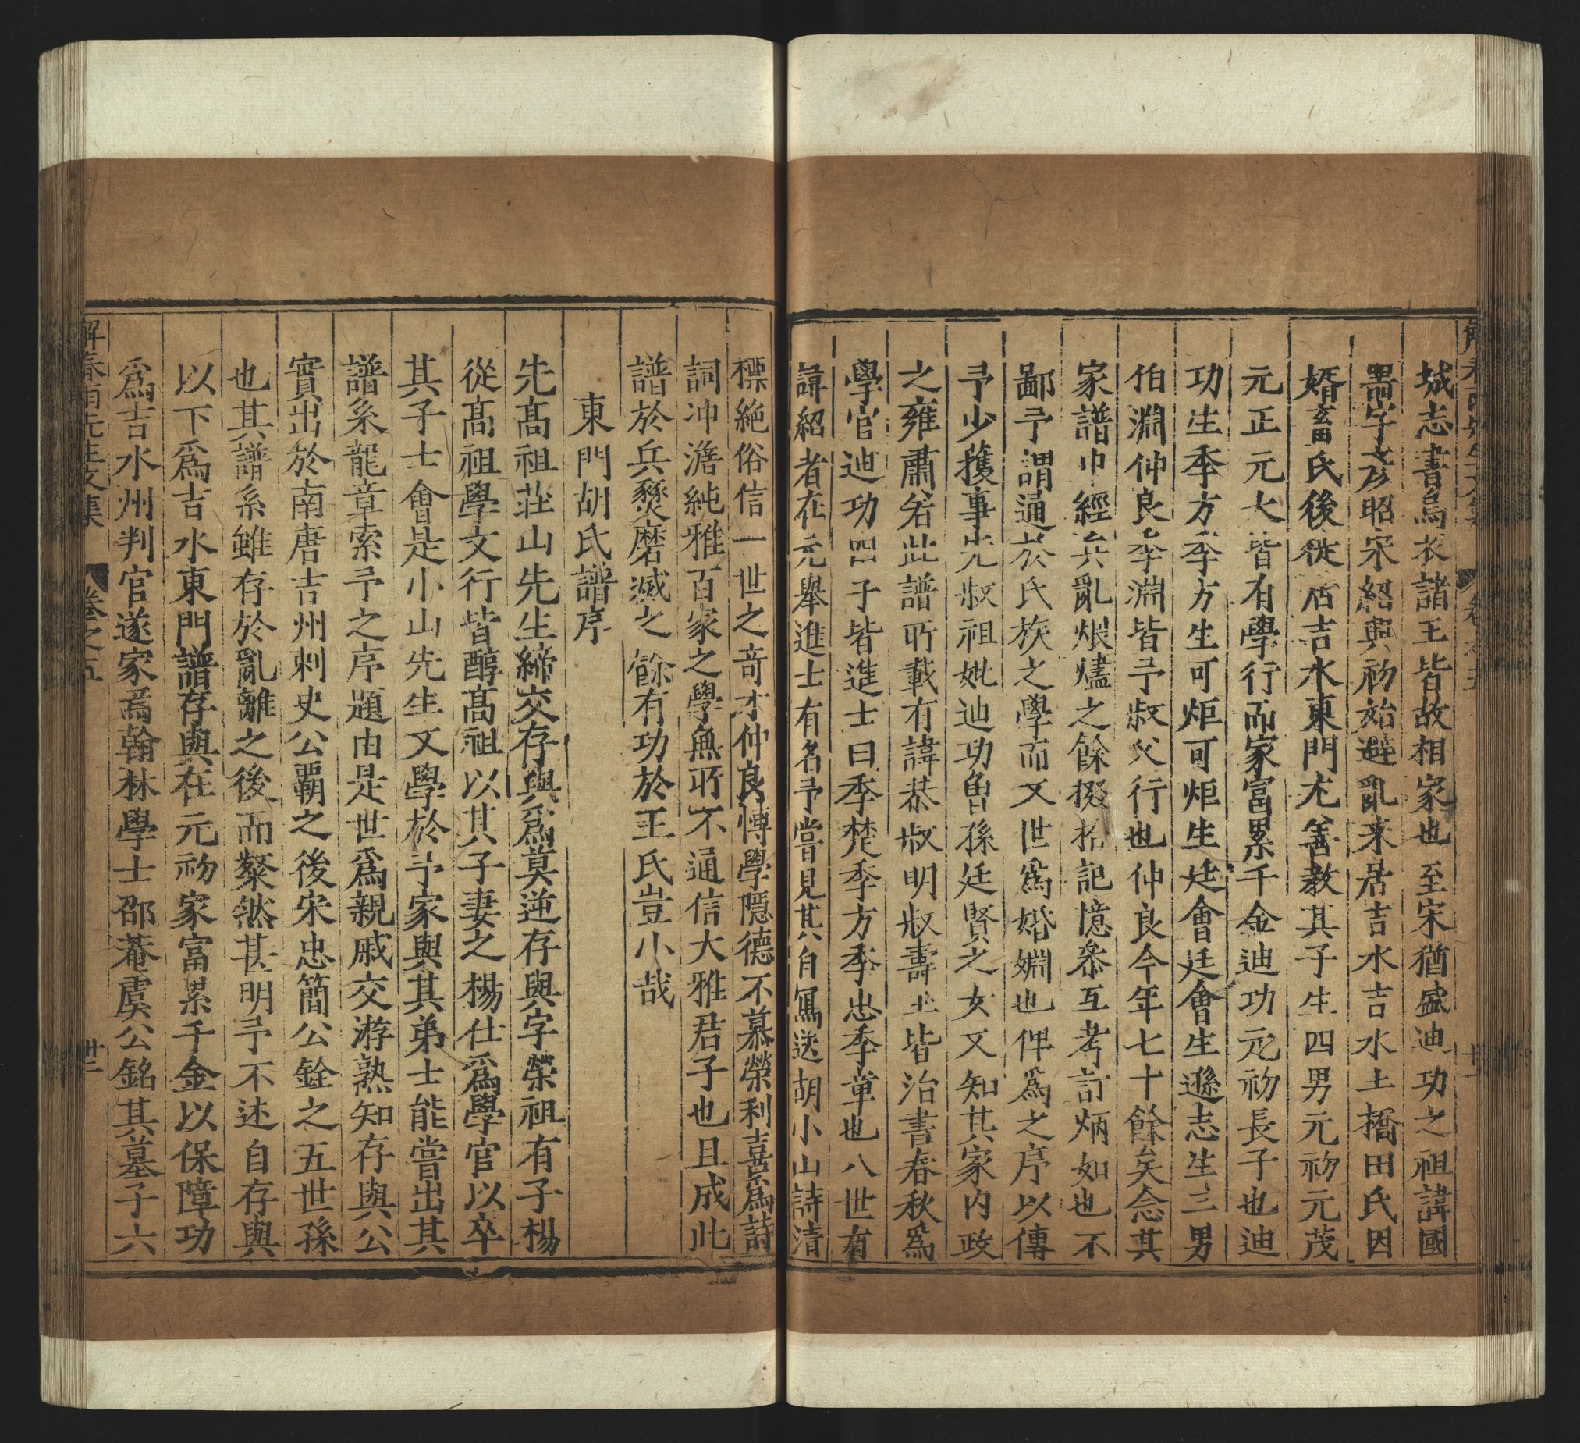 城志書烏衣諸王皆故相家也至宋猶盛迪功之祖諱國
器字彥昭宋紹興初始避亂來居吉水吉水土橋田氏因
婿畜氏後從居吉水東門尤善教其子生四男元初元茂
元正元大皆有學行而家富累千金迪功元初長子也迪
功生季方季方生可炬可炬生廷會廷會生遜志生三男
伯淵仲良季淵皆予叔父行也仲良今年七十餘矣念其
家譜中經兵亂煨燼之餘掇拾記憶叅互考訂炳如也不
鄙予謂通於氏族之學而又世爲婚姻也俾爲之序以傳
予少獲事先叔祖妣迪功曾孫廷賢之女又知其家內政
之雍肅若此譜所載有諱恭叔明叔壽土皆治書春秋爲
學官迪功四子皆進士曰季楚季方季忠季章也八世有
諱紹者在元舉進士有名予嘗見其自寫送胡小山詩清
標絶俗信一世之竒才仲良愽學隱德不慕榮利喜爲詩
詞冲澹純雅百家之學無所不通信大雅君子也且成此
譜於兵燹磨滅之餘有功於王氏豈小哉
東門胡氏譜序
先髙祖荘山先生締交存與爲莫逆存與字榮祖有子楊
從髙祖學文行皆醇髙祖以其子妻之楊仕爲學官以卒
其子士會是小山先生又學於予家與其弟士能嘗出其
譜系龍章索予之序題由是世爲親戚交游熟知存與公
實出於南唐吉州刺史公霸之後宋忠簡公銓之五世孫
也其譜系雖存於亂離之後而粲然甚明予不述自存與
以下爲吉水東門譜存與在元初家富累千金以保障功
爲吉水州判官遂家焉翰林學士邵菴虞公銘其墓子六
解春雨先生文集 卷之五 廿二